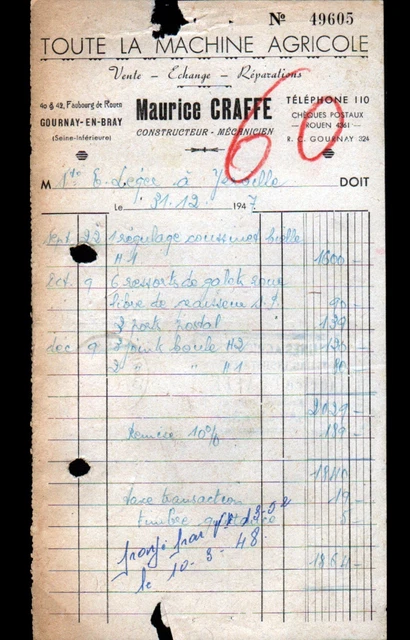 Nº 49605
TOUTE LA MACHINE AGRICOLE
Vente - Echange - Réparations
40 & 42, Faubourg de Rouen
GOURNAY-EN-BRAY
(Seine-Inférieure)
Maurice CRAFFE
CONSTRUCTEUR-MÉCANICIEN
TÉLÉPHONE 110
CHÈQUES POSTAUX
ROUEN 4361
R. C. GOURNAY 324
60
M Sté E. Léger à DOIT
Le 31.12. 1947
sept 22 1 régulage coussinet bielle
H1 1600 -
oct. 9 6 ressorts de galets pour
90 -
139
dec 9 2 joint boule H2
2 " " H1
2029 -
Remise 10% 189 -
1840
taxe transaction 19 -
timbre quittance 5 -
1864 -
le 10-3-48